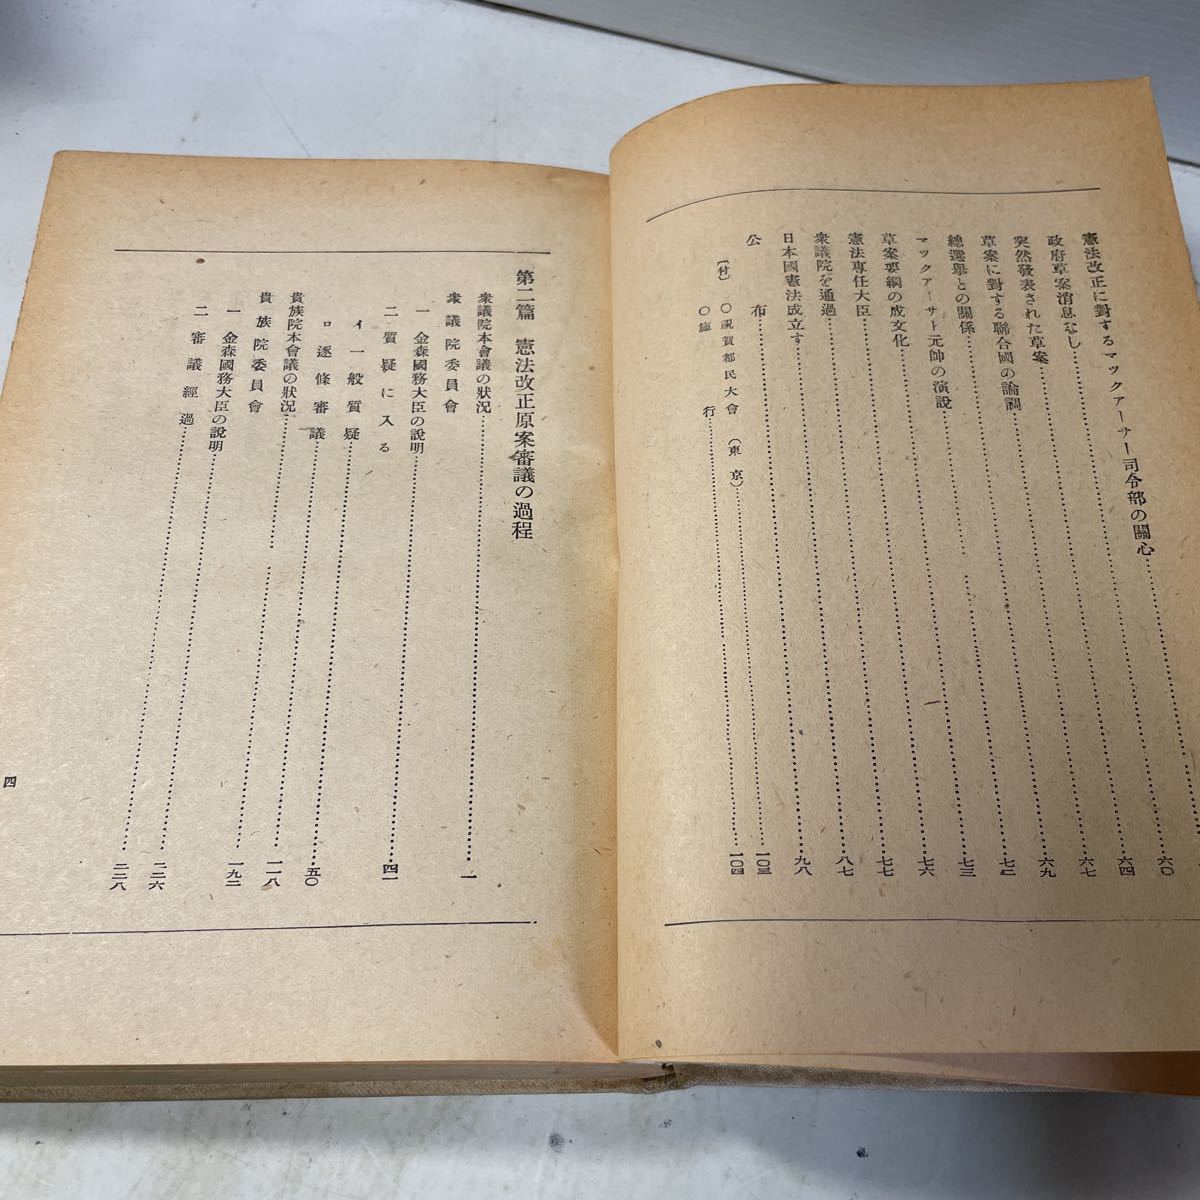 憲法改正に對するマックアーサー司令部の關心……六〇
政府草案消息なし……六四
突然發表された草案……六七
草案に對する聯合國の論調……六九
總選擧との關係……七二
マックアーサー元帥の演説……七三
草案要綱の成文化……七六
憲法専任大臣……七七
衆議院を通過……八七
日本國憲法成立す……九八
公布……一〇三
〔付〕〇祝賀都民大會(東京)……一〇四
〇施行
第二篇 憲法改正原案審議の過程
衆議院本會議の狀況……一
衆議院委員會
一 金森國務大臣の説明……四一
二 質疑に入る
イ 一般質疑……五〇
ロ 逐條審議……一一八
貴族院本會議の狀況……一九二
貴族院委員會
一 金森國務大臣の説明……二二六
二 審議經過……二三八
四